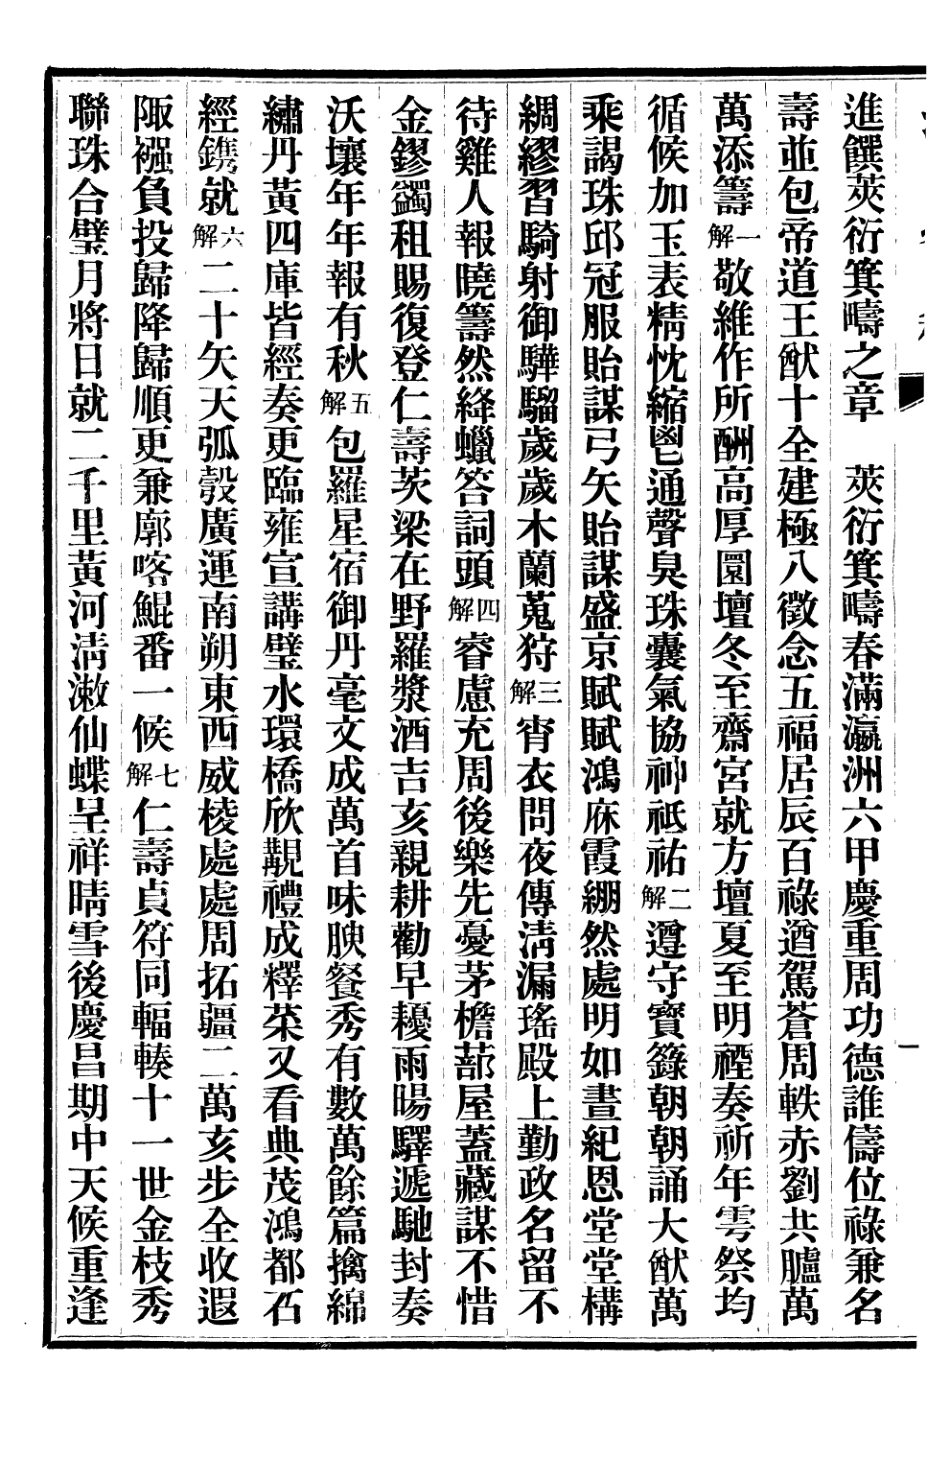 進饌莢衍箕疇之章　莢衍箕疇春滿瀛洲六甲慶重周功德誰儔位祿兼名
壽並包帝道王猷十全建極八徵念五福居辰百祿遒駕蒼周軼赤劉共臚萬
萬添籌一解敬維作所酬高厚圜壇冬至齋宮就方壇夏至明禋奏祈年雩祭均
循候加玉表精忱縮鬯通聲臭珠囊氣協神祇祐二解遵守寶籙朝朝誦大猷萬
乘謁珠邱冠服貽謀弓矢貽謀盛京賦賦鴻庥霞綳然處明如晝紀恩堂堂構
綢繆習騎射御驊騮歲歲木蘭蒐狩三解宵衣問夜傳淸漏瑤殿上勤政名留不
待雞人報曉籌然絳蠟答詞頭四解睿慮充周後樂先憂茅檐蔀屋蓋藏謀不惜
金鏐蠲租賜復登仁壽茨梁在野羅漿酒吉亥親耕勸早耰雨暘驛遞馳封奏
沃壤年年報有秋五解包羅星宿御丹毫文成萬首味腴餐秀有數萬餘篇擒綿
繡丹黃四庫皆經奏更臨雍宣講璧水環橋欣覯禮成釋菜又看典茂鴻都石
經鐫就六解二十矢天弧彀廣運南朔東西威棱處處周拓疆二萬亥步全收遐
陬襁負投歸降歸順更兼廓喀鯤番一候七解仁壽貞符同輻輳十一世金枝秀
聯珠合璧月將日就二千里黃河淸漱仙蝶呈祥晴雪後慶昌期中天候重逢
一